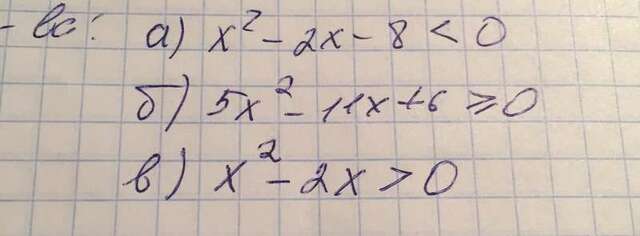 - во: а) x² - 2x - 8 < 0
б) 5x² - 11x + 6 ≥ 0
в) x² - 2x > 0